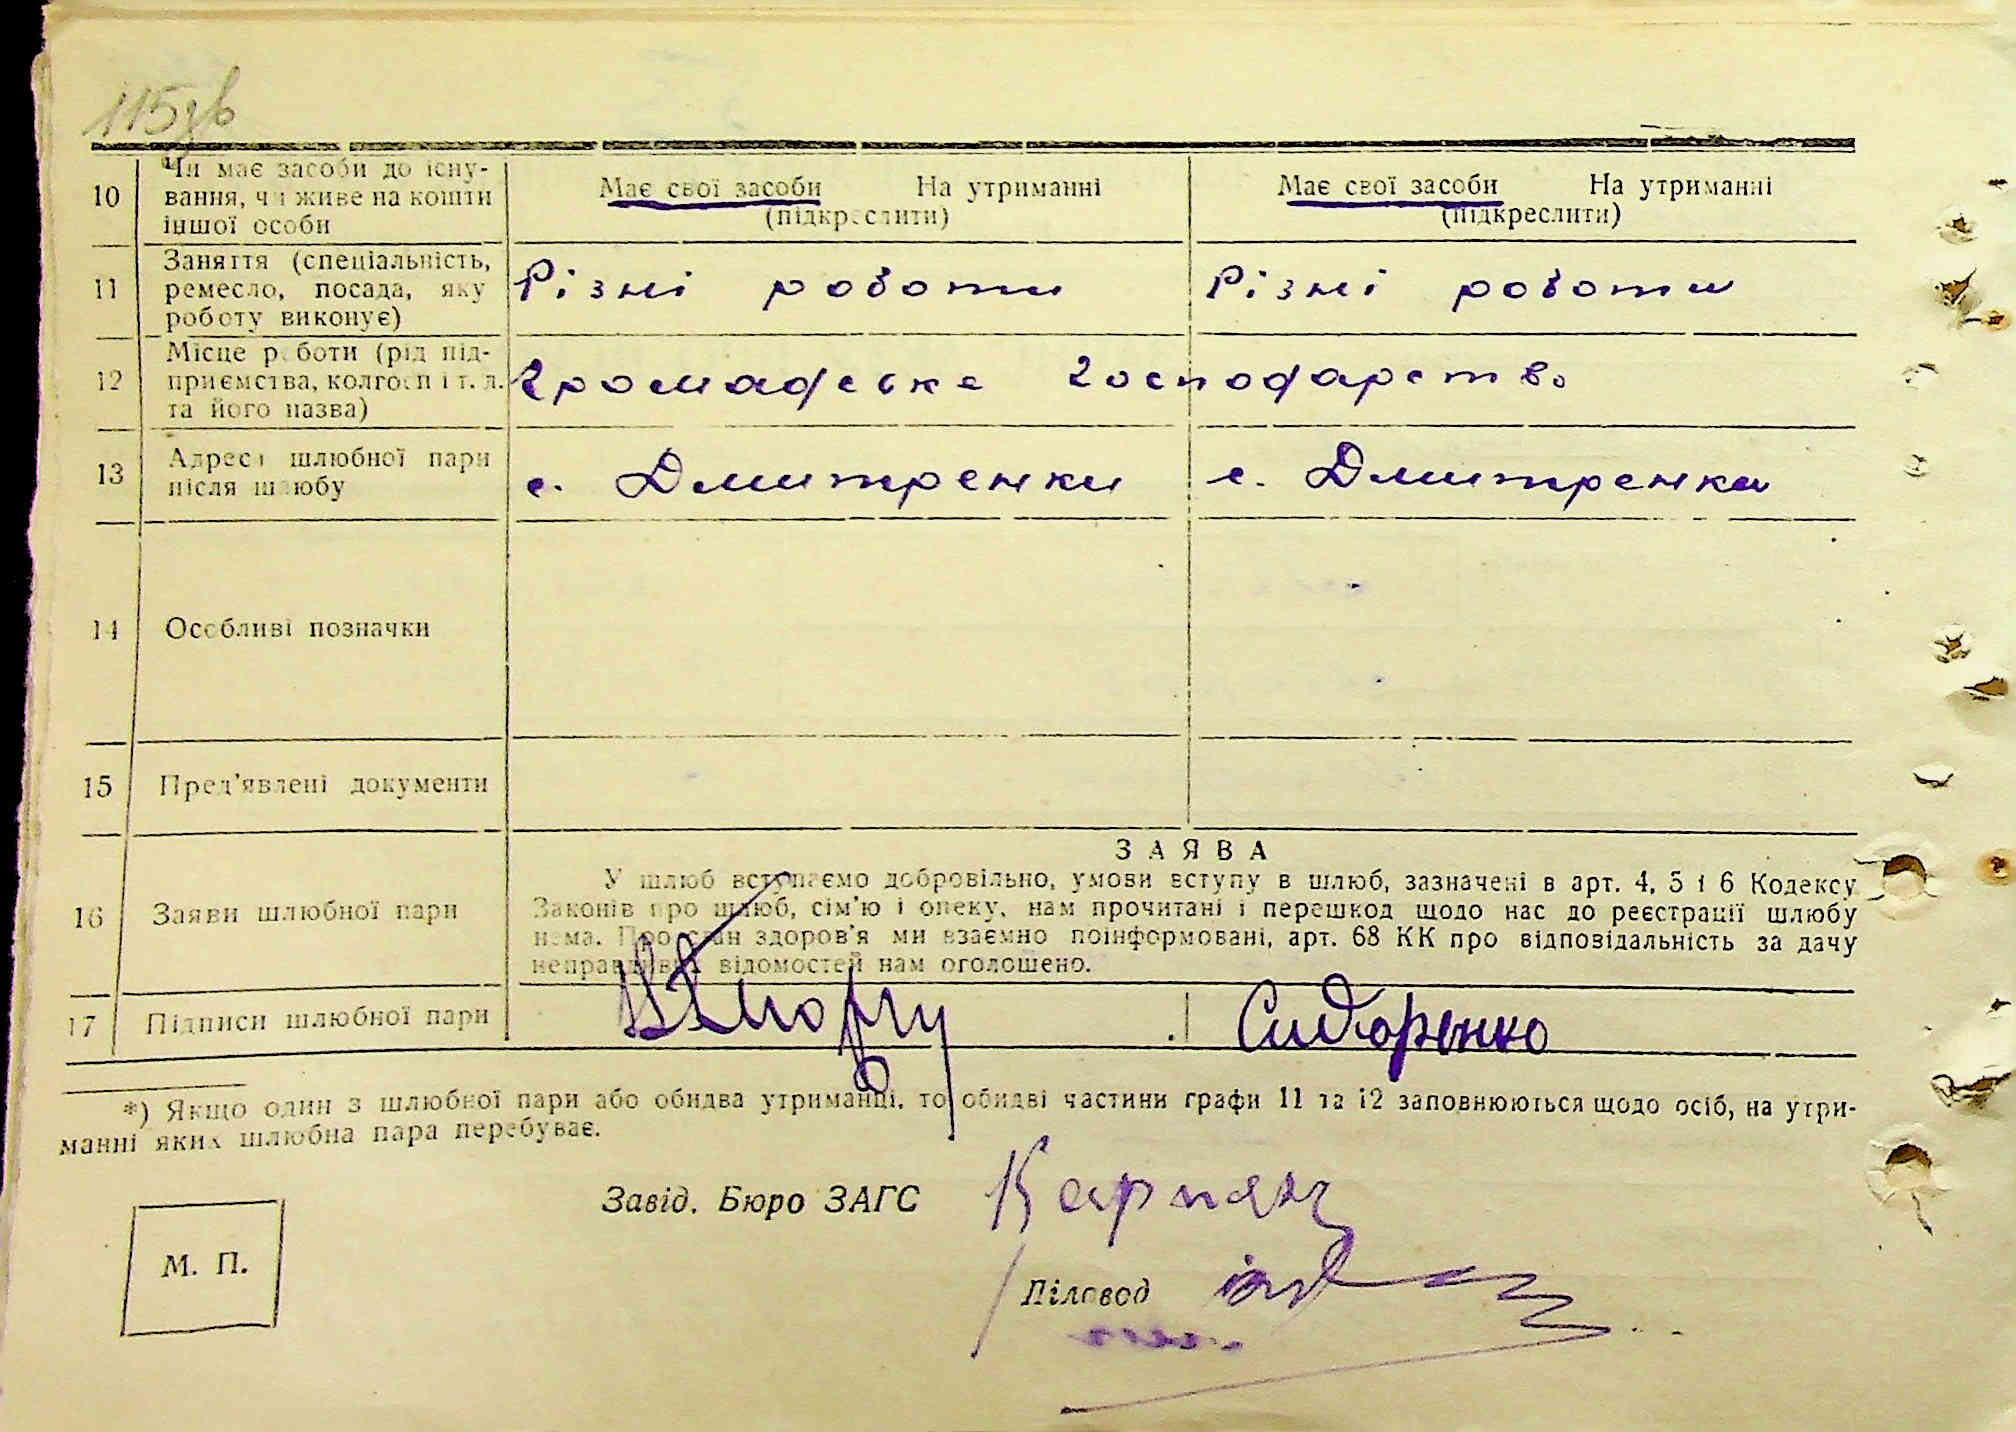 115зв
10 Чи має засоби до існу-
вання, чи живе на кошти
іншої особи
Має свої засоби На утриманні
(підкреслити)
Має свої засоби На утриманні
(підкреслити)
11 Заняття (спеціальність,
ремесло, посада, яку
роботу виконує)
Різні роботи
Різні роботи
12 Місце роботи (рід під-
приємства, колгосп і т. д.
та його назва)
Громадське Господарство
13 Адреса шлюбної пари
після шлюбу
с. Дмитренки
с. Дмитренки
14 Особливі позначки
15 Пред'явлені документи
16 Заяви шлюбної пари
ЗАЯВА
У шлюб вступаємо добровільно, умови вступу в шлюб, зазначені в арт. 4, 5 і 6 Кодексу
Законів про шлюб, сім'ю і опеку, нам прочитані і перешкод щодо нас до реєстрації шлюбу
нема. Про стан здоров'я ми взаємно поінформовані, арт. 68 КК про відповідальність за дачу
неправдивих відомостей нам оголошено.
17 Підписи шлюбної пари
Сидоренко
*) Якщо один з шлюбної пари або обидва утриманці, то обидві частини графи 11 та 12 заповнюються щодо осіб, на утри-
манні яких шлюбна пара перебуває.
Завід. Бюро ЗАГС
М. П.
Діловод